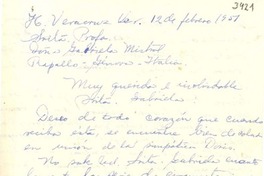 3421
H. Veracruz Ver. 12 de febrero 1951
Srita. Profa.
Doña Gabriela Mistral
Rapallo - Génova - Italia.
Muy querida e inolvidable
Srita. Gabriela:
Deseo de todo corazón que cuando
reciba ésta, se encuentre bien de salud
en unión de la simpática Doris.
No sabe Ud. Srita. Gabriela cuanto